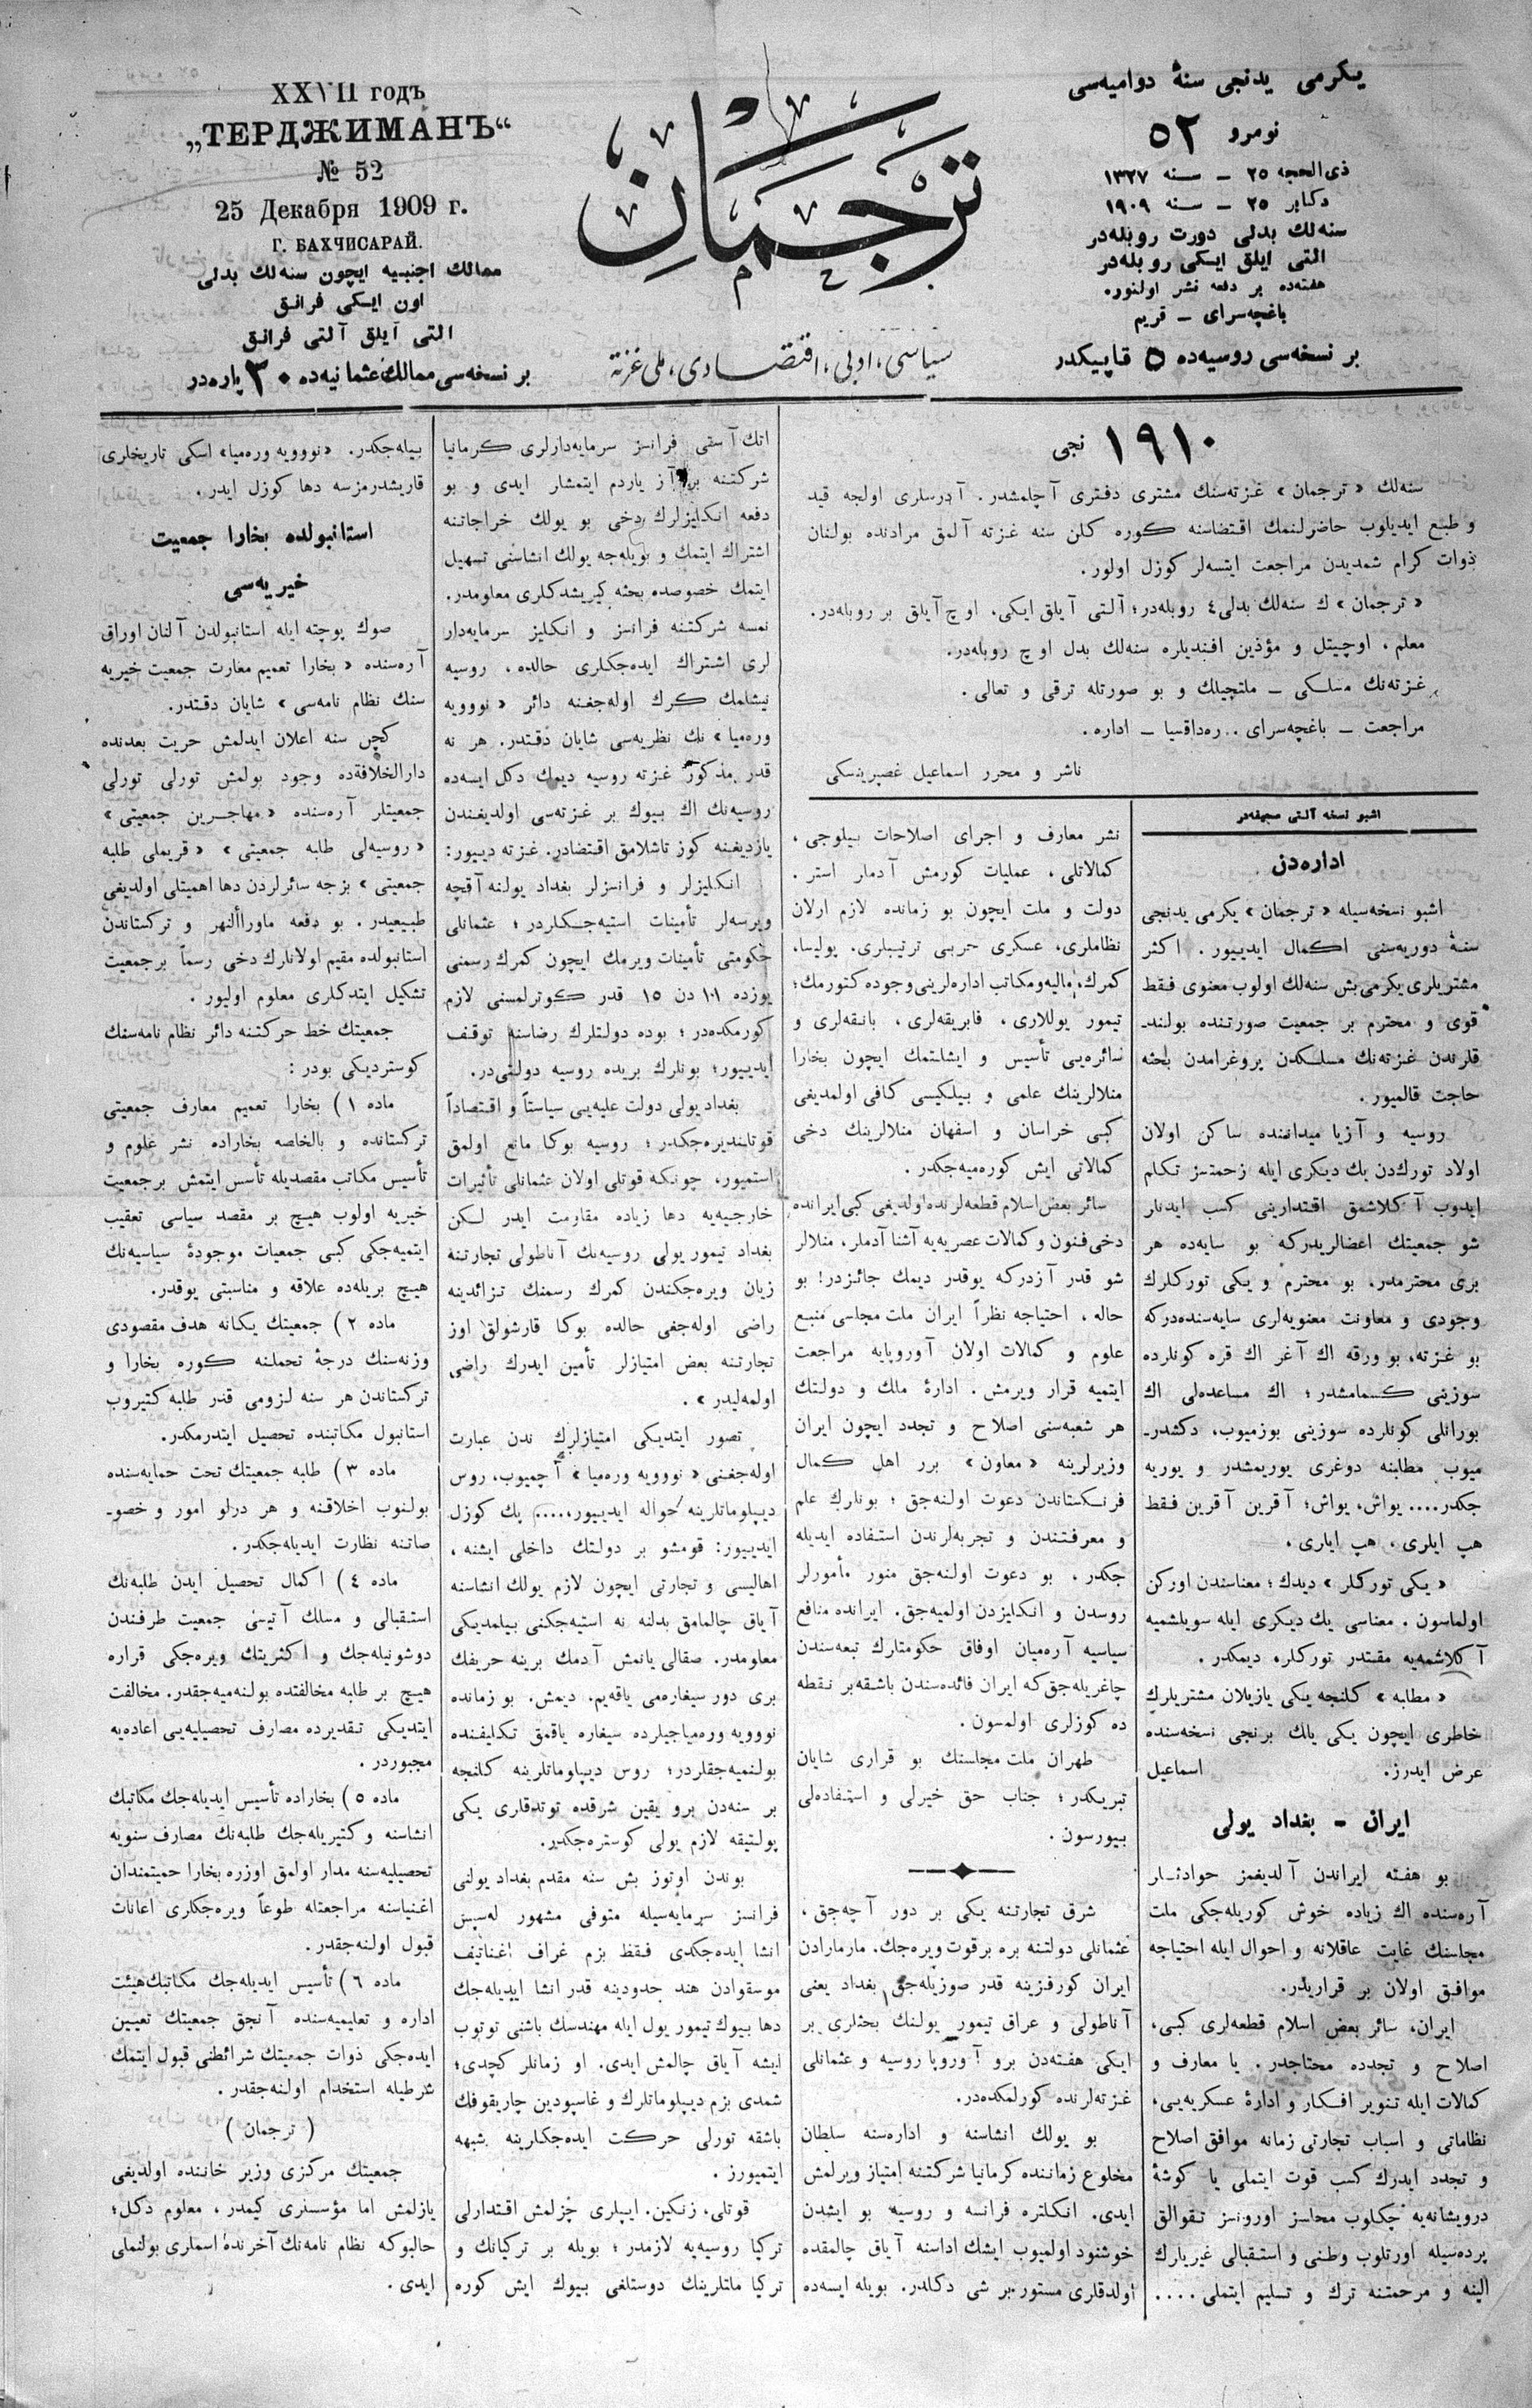 يكرمی يدنجی سنۀ دواميه‌سی
نومرو ٥٢
ذی الحجه ٢٥ – سنه ١٣٢٧
دكابر ٢٥ – سنه ١٩٠٩
سنه‌لك بدلی دورت روبله‌در
التی ايلق ايكی روبله‌در
هفته‌ده بر دفعه نشر اولنور.
باغچه‌سرای – قريم
بر نسخه‌سی روسيه‌ده ٥ قاپيكدر
ترجمان
سياسی، ادبی، اقتصادی، ملی غزته
XXVII годъ
„ТЕРДЖИМАНЪ“
№ 52
25 Декабря 1909 г.
Г. БАХЧИСАРАЙ.
ممالك اجنبيه ايچون سنه‌لك بدلی
اون ايكی فرانق
التی آيلق آلتی فرانق
بر نسخه‌سی ممالك عثمانيه‌ده ٣٠ پاره‌در
١٩١٠ نجی
سنه‌لك « ترجمان » غزته‌سنك مشتری دفتری آچلمشدر. آدرسلری اولجه قيد
و طبع ايديلوب حاضرلنمك اقتضاسنه كوره كلن سنه غزته آلمق مرادنده بولنان
ذوات كرام شمديدن مراجعت ايتسه‌لر كوزل اولور.
« ترجمان » ك سنه‌لك بدلی ٤ روبله‌در؛ آلتی آيلق ايكی، اوچ آيلق بر روبله‌در.
معلم، اوچيتل و مؤذين افنديلره سنه‌لك بدل اوچ روبله‌در.
غزته‌نك مسلكی – ملتچيلك و بو صورتله ترقی و تعالی.
مراجعت – باغچه‌سرای.. ره‌داقسيا – اداره.
ناشر و محرر اسماعيل غصپرينسكی
اشبو نسخه آلتی صحيفه‌در
اداره‌دن
اشبو نسخه‌سيله « ترجمان » يكرمی يدنجی
سنۀ دوريه‌سنی اكمال ايدييور. اكثر
مشتريلری يكرمی بش سنه‌لك اولوب معنوی فقط
قوی و محترم بر جمعيت صورتنده بولند-
قلرندن غزته‌نك مسلكدن پروغرامدن بحثه
حاجت قالميور.
روسيه و آزيا ميداننده ساكن اولان
اولاد تورك‌دن بك ديكری ايله زحمتسز تكلم
ايدوب آكلاشمق اقتدارينی كسب ايدنلر
شو جمعيتك اعضالريدركه بو سايه‌ده هر
بری محترمدر. بو محترم و يكی توركلرك
وجودی و معاونت معنويه‌لری سايه‌سنده‌دركه
بو غزته، بو ورقه اك آغر اك قره كونلرده
سوزينی كسمامشدر؛ اك مساعده‌لی اك
بورانلی كونلرده سوزينی بوزميوب، دكشدر-
ميوب مطلبنه دوغری يوريمشدر و يوريه
جكدر.... يواش، يواش؛ آقرين آقرين فقط
هپ ايلری، هپ ايلری.
« يكی توركلر » ديدك؛ معناسندن اوركن
اولماسون. معناسی يك ديكری ايله سويلشميه
آكلاشمه‌يه مقتدر توركلر. ديمكدر.
« مطلبه » كلنجه يكی يازيلان مشتريلرك
خاطری ايچون يكی يلك برنجی نسخه‌سنده
عرض ايدرز. اسماعيل
ايران – بغداد يولی
بو هفته ايراندن آلديغمز حوادثلر
آره‌سنده اك زياده خوش كوريله‌جكی ملت
مجلسنك غايت عاقلانه و احوال ايله احتياجه
موافق اولان بر قراريدر.
ايران، سائر بعض اسلام قطعه‌لری كبی،
اصلاح و تجدده محتاجدر. يا معارف و
كمالات ايله تنوير افكار و ادارۀ عسكريه‌يی،
نظاماتی و اسباب تجارتی زمانه موافق اصلاح
و تجدد ايدرك كسب قوت ايتملی يا كوشۀ
درويشانه‌يه چكلوب محاسز اوروسز تقوالق
پرده‌سيله اورتلوب وطنی و استقبالی غيريلرك
الينه و مرحمتنه ترك و تسليم ايتملی....
نشر معارف و اجرای اصلاحات بيلوجی،
كمالاتلی، عمليات كورمش آدملر استر.
دولت و ملت ايچون بو زمانده لازم اولان
نظاملری، عسكری حربی ترتيبلری. پوليسا،
كمرك، ماليه و مكاتب اداره‌لرينی وجوده كتورمك؛
تيمور يوللاری، فابريقه‌لری، بانقه‌لری و
سائره‌يی تأسيس و ايشلتمك ايچون بخارا
منلالرينك علمی و بيلكيسی كافی اولمديغی
كبی خراسان و اسفهان منلالرينك دخی
كمالاتی ايش كوره‌ميه‌جكدر.
سائر بعض اسلام قطعه‌لرنده اولديغی كبی ايرانده
دخی فنون و كمالات عصريه‌يه آشنا آدملر، منلالر
شو قدر آزدركه يوقدر ديمك جائزدر! بو
حاله، احتياجه نظراً ايران ملت مجلسی منبع
علوم و كمالات اولان آوروپايه مراجعت
ايتميه قرار ويرمش. ادارۀ ملك و دولتك
هر شعبه‌سنی اصلاح و تجدد ايچون ايران
وزيرلرينه « معاون » برر اهل كمال
فرنكستاندن دعوت اولنه‌جق؛ بونلرك علم
و معرفتندن و تجربه‌لرندن استفاده ايديله
جكدر. بو دعوت اولنه‌جق منور مأمورلر
روسدن و انكليزدن اولميه‌جق. ايرانده منافع
سياسيه آره‌ميان اوفاق حكومتلرك تبعه‌سندن
چاغريله‌جق كه ايران فائده‌سندن باشقه بر نقطه
ده كوزلری اولمسون.
طهران ملت مجلسنك بو قراری شايان
تبريكدر؛ جناب حق خيرلی و استفاده‌لی
بيورسون.
شرق تجارتنه يكی بر دور آچه‌جق،
عثمانلی دولتنه بره بر قوت ويره‌جك. مارمارادن
ايران كورفزينه قدر صوزيله‌جق بغداد يعنی
آناطولی و عراق تيمور يولنك بحثلری بر
ايكی هفته‌دن برو آوروپا روسيه و عثمانلی
غزته‌لرنده كورلمكده‌در.
بو يولك انشاسنه و اداره‌سنه سلطان
مخلوع زماننده كرمانيا شركتنه امتياز ويرلمش
ايدی. انكلتره فرانسه و روسيه بو ايشدن
خوشنود اولميوب ايشك اداسنه آياق چالمقده
اولدقلری مستور بر شی دكلدر. بويله ايسه‌ده
انك آسقی فرانسز سرمايه‌دارلری كرمانيا
شركتنه بر آز ياردم ايتمشلر ايدی و بو
دفعه انكليزلرك دخی بو يولك خراجاتنه
اشتراك ايتمك و بويله‌جه يولك انشاسنی تسهيل
ايتمك خصوصده بحثه كيريشدكلری معلومدر.
نمسه شركتنه فرانسز و انكليز سرمايه‌دار
لری اشتراك ايده‌جكلری حالده، روسيه
نيشلمك كرك اوله‌جغنه دائر « نوويه
وره‌ميا » نك نظريه‌سی شايان دقتدر. هر نه
قدر مذكور غزته روسيه ديمك دكل ايسه‌ده
روسيه‌نك اك بيوك بر غزته‌سی اولديغندن
يازديغنه كوز تاشلامق اقتضادر. غزته دييور:
انكليزلر و فرانسزلر بغداد يولنه آقچه
ويرسه‌لر تأمينات استيه‌جكلردر؛ عثمانلی
حكومتی تأمينات ويرمك ايچون كمرك رسمنی
يوزده ١٠١ دن ١٥ قدر كوترلمسنی لازم
كورمكده‌در؛ بوده دولتلرك رضاسنه توقف
ايدييور؛ بونلرك بريده روسيه دولتی‌در.
بغداد يولی دولت عليه‌يی سياستاً و اقتصاداً
قوتلنديره‌جكدر؛ روسيه بوكا مانع اولمق
استميور، چونكه قوتلی اولان عثمانلی تأثيرات
خارجيه‌يه دها زياده مقاومت ايدر لكن
بغداد تيمور يولی روسيه‌نك آناطولی تجارتنه
زيان ويره‌جكندن كمرك رسمنك تزائدينه
راضی اوله‌جغی حالده بوكا قارشولق اوز
تجارتنه بعض امتيازلر تأمين ايدرك راضی
اولمه‌ليدر ».
تصور ايتديكی امتيازلرك ندن عبارت
اوله‌جغنی « نوويه وره‌ميا » آچميوب، روس
ديپلوماتلرينه حواله ايدييور..... پك كوزل
ايدييور: قومشو بر دولتك داخلی ايشنه،
اهاليسی و تجارتی ايچون لازم يولك انشاسنه
آياق چالمامق بدلنه نه استيه‌جكنی بيلمديكی
معلومدر. صقالی يانمش آدمك برينه حريفك
بری دور سيغاره‌می ياقه‌يم. ديمش. بو زمانده
نوويه وره‌مياجيلرده سيغاره ياقمق تكليفنده
بولنميه‌جقلردر؛ روس ديپلوماتلرينه كلنجه
بر سنه‌دن برو يقين شرقده توتدقلری يكی
پولتيقه لازم يولی كوستره‌جكدر.
بوندن اوتوز بش سنه مقدم بغداد يولنی
فرانسز سرمايه‌سيله متوفی مشهور له‌سپس
انشا ايده‌جكدی فقط بزم غراف اغناتيف
موسقوادن هند حدودينه قدر انشا ايديله‌جك
دها بيوك تيمور يول ايله مهندسك باشنی توتوب
ايشه آياق چالمش ايدی. او زمانلر كچدی؛
شمدی بزم ديپلوماتلرك و غاسپودين چاريقوفك
باشقه تورلی حركت ايده‌جكلرينه شبهه
ايتميورز.
قوتلی، زنكين. ايپلری چزلمش اقتدارلی
تركيا روسيه‌يه لازمدر؛ بويله بر تركيانك و
تركيا ملتلرينك دوستلغی بيوك ايش كوره
بيله‌جكدر. « نوويه وره‌ميا » اسكی تاريخلری
قاريشدرمزسه دها كوزل ايدر.
استانبولده بخارا جمعيت
خيريه‌سی
صوك پوچته ايله استانبولدن آلنان اوراق
آره‌سنده « بخارا تعميم معارف جمعيت خيريه
سنك نظام نامه‌سی » شايان دقتدر.
كچن سنه اعلان ايدلمش حريت بعدنده
دارالخلافه‌ده وجود بولمش تورلی تورلی
جمعيتلر آره‌سنده « مهاجرين جمعيتی »
« روسيه‌لی طلبه جمعيتی » « قريملی طلبه
جمعيتی » بزجه سائرلردن دها اهميتلی اولديغی
طبيعيدر. بو دفعه ماوراألنهر و تركستاندن
استانبولده مقيم اولانلرك دخی رسماً بر جمعيت
تشكيل ايتدكلری معلوم اوليور.
جمعيتك خط حركتنه دائر نظام نامه‌سنك
كوسترديكی بودر:
ماده ١) بخارا تعميم معارف جمعيتی
تركستانده و بالخاصه بخاراده نشر علوم و
تأسيس مكاتب مقصديله تأسس ايتمش بر جمعيت
خيريه اولوب هيچ بر مقصد سياسی تعقيب
ايتميه‌جكی كبی جمعيات موجودۀ سياسيه‌نك
هيچ بريله‌ده علاقه و مناسبتی يوقدر.
ماده ٢) جمعيتك يكانه هدف مقصودی
وزنه‌سنك درجۀ تحملنه كوره بخارا و
تركستاندن هر سنه لزومی قدر طلبه كتيروب
استانبول مكاتبنده تحصيل ايتدرمكدر.
ماده ٣) طلبه جمعيتك تحت حمايه‌سنده
بولنوب اخلاقنه و هر درلو امور و خصو-
صاتنه نظارت ايديله‌جكدر.
ماده ٤) اكمال تحصيل ايدن طلبه‌نك
استقبالی و مسلك آتيسی جمعيت طرفندن
دوشونيله‌جك و اكثريتك ويره‌جكی قراره
هيچ بر طلبه مخالفتده بولنه‌ميه‌جقدر. مخالفت
ايتديكی تقديرده مصارف تحصيليه‌يی اعاده‌يه
مجبوردر.
ماده ٥) بخاراده تأسيس ايديله‌جك مكاتبك
انشاسنه و كتيريله‌جك طلبه‌نك مصارف سنويه
تحصيليه‌سنه مدار اولمق اوزره بخارا حميتمندان
اغنياسنه مراجعتله طوعاً ويره‌جكلری اعانات
قبول اولنه‌جقدر.
ماده ٦) تأسيس ايديله‌جك مكاتبك هيئت
اداره و تعليميه‌سنده آنجق جمعيتك تعيين
ايده‌جكی ذوات جمعيتك شرائطنی قبول ايتمك
شرطيله استخدام اولنه‌جقدر.
( ترجمان )
جمعيتك مركزی وزير خاننده اولديغی
يازلمش اما مؤسسلری كيمدر، معلوم دكل؛
حالبوكه نظام نامه‌نك آخرنده اسملری بولنملی
ايدی.